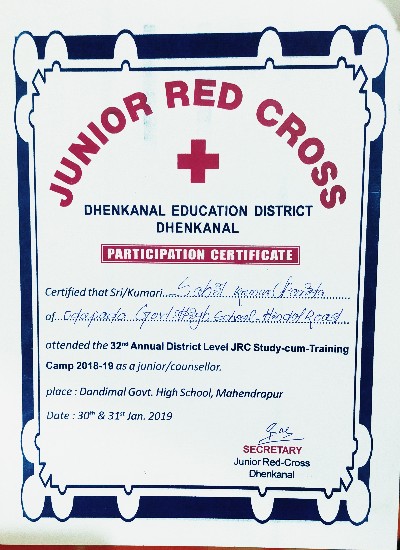 JUNIOR RED CROSS
DHENKANAL EDUCATION DISTRICT
DHENKANAL
PARTICIPATION CERTIFICATE
Certified that Sri/Kumari Kumar
of Govt. High School, Hindol Road
attended the 32nd Annual District Level JRC Study-cum-Training
Camp 2018-19 as a junior/counsellor.
place : Dandimal Govt. High School, Mahendrapur
Date : 30th & 31st Jan. 2019
SECRETARY
Junior Red-Cross
Dhenkanal